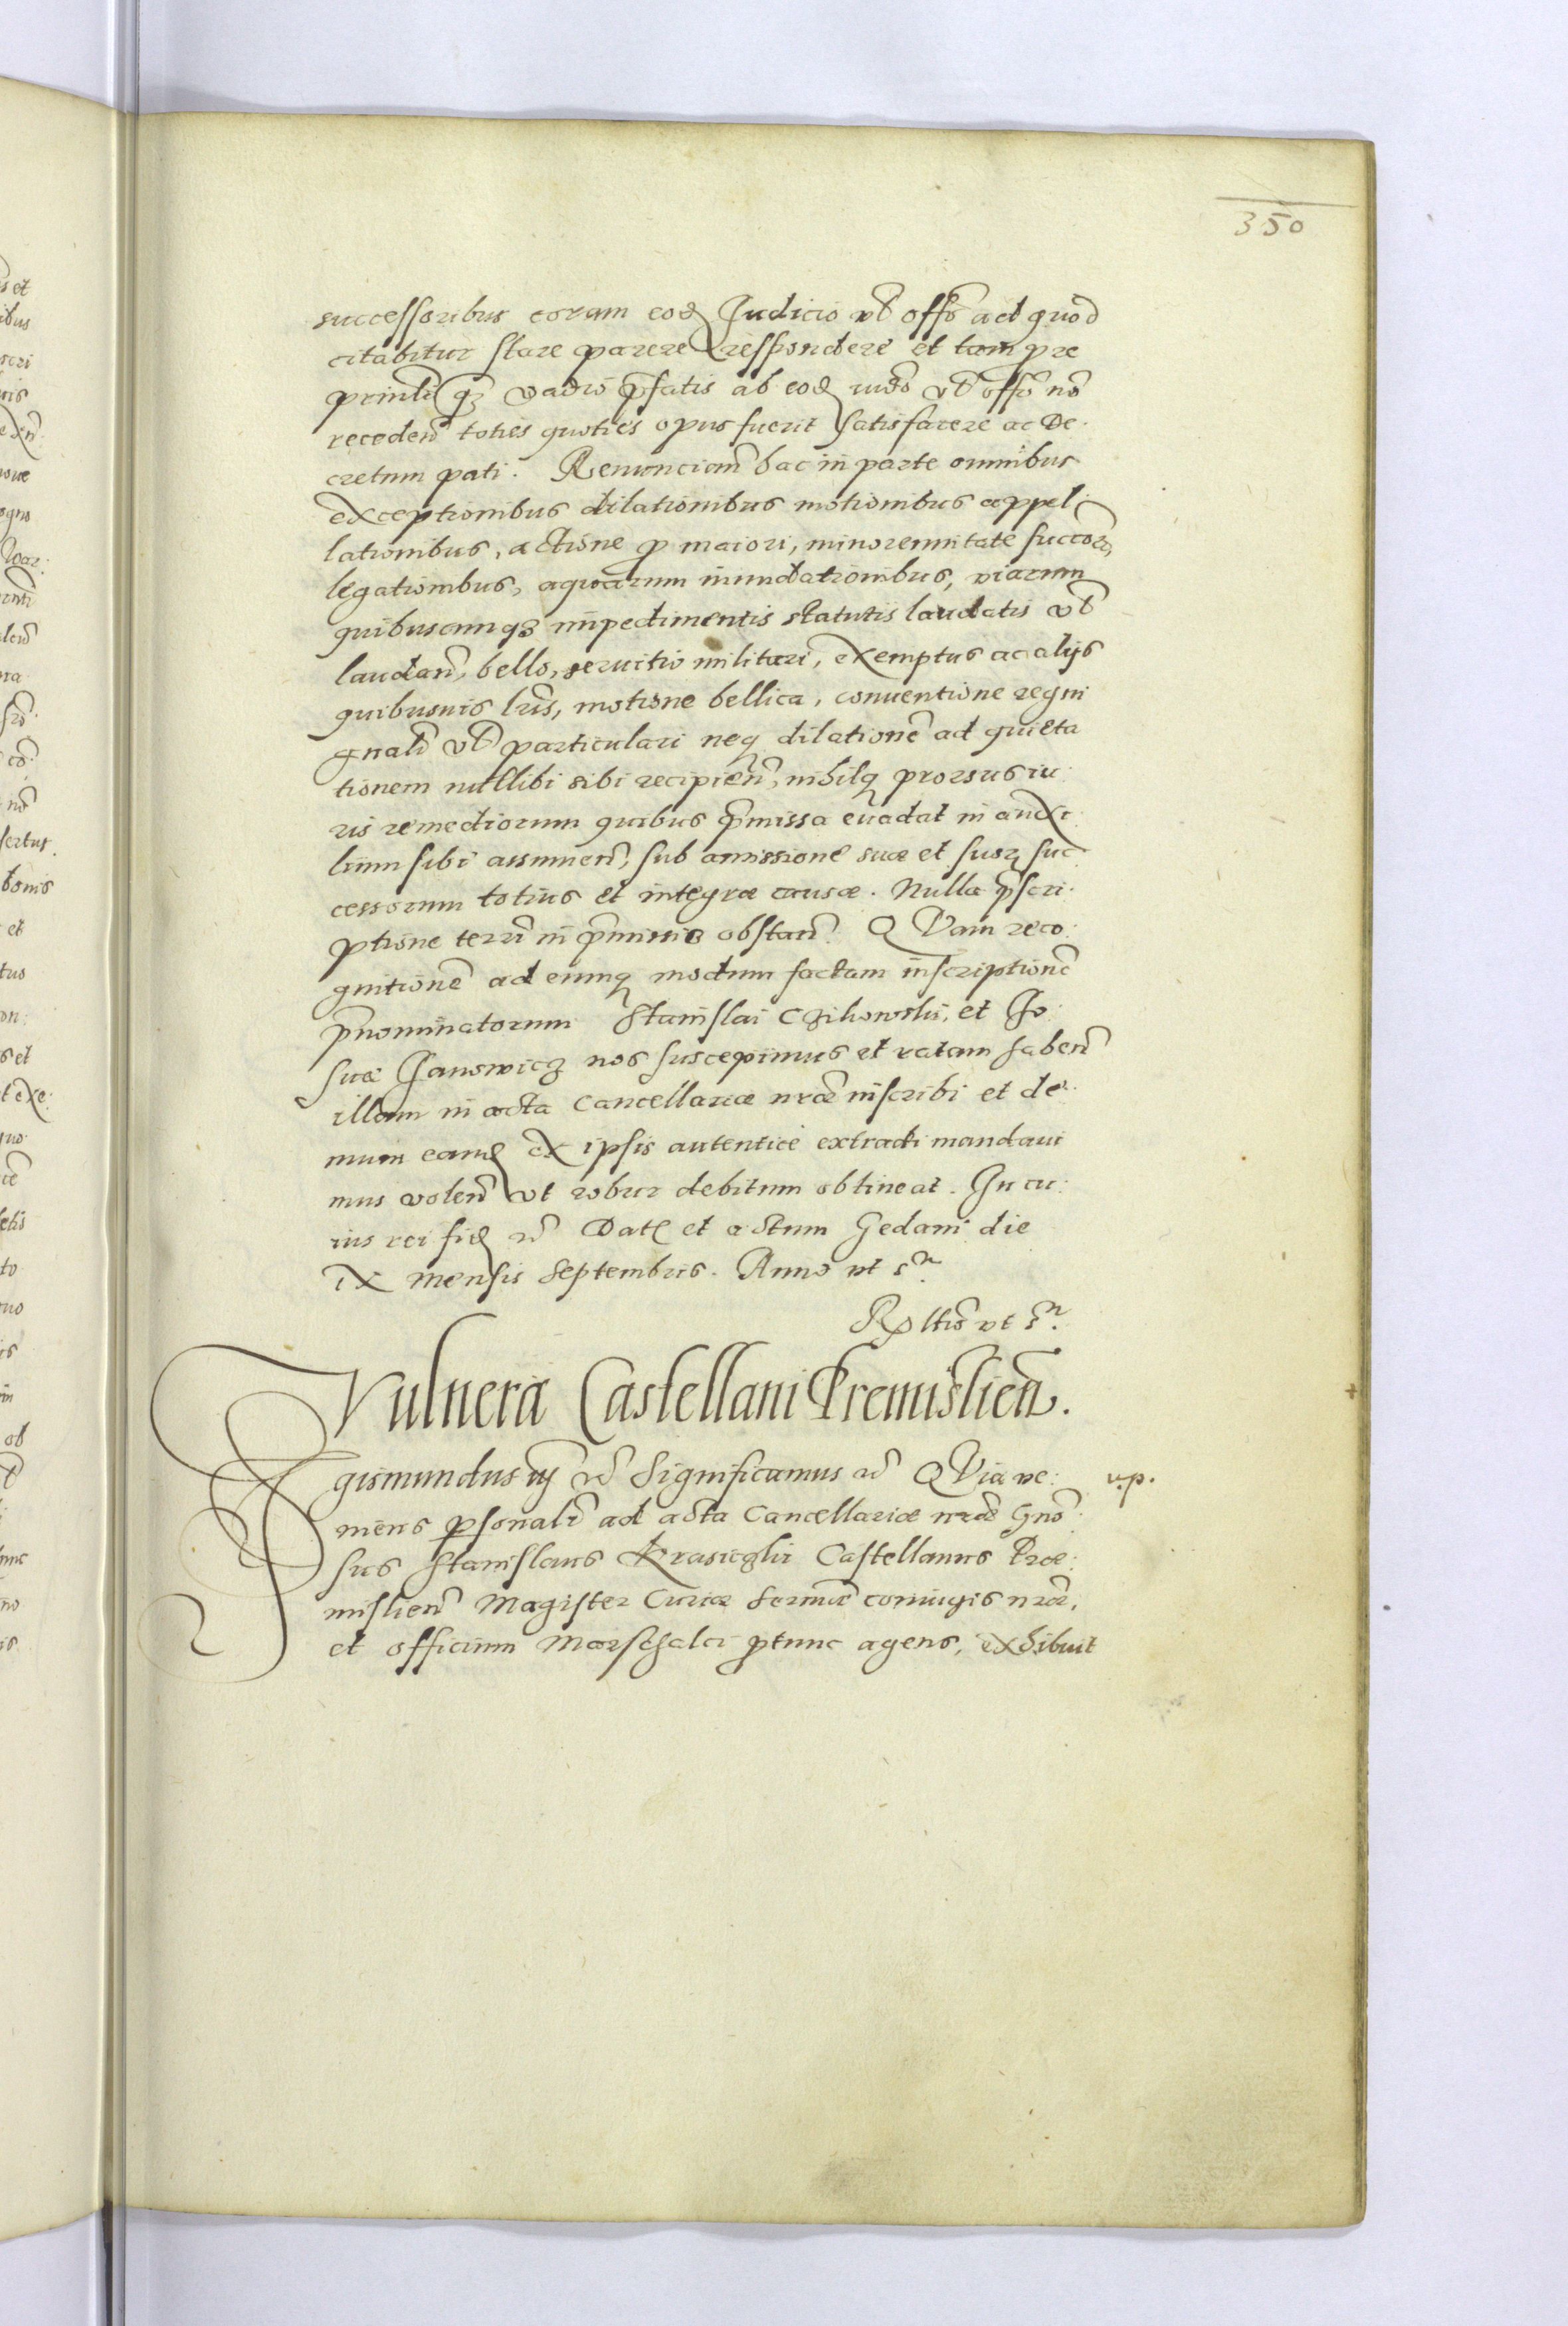 350
successoribus coram eod Judicio vel offo ad quod
citabitur stare parere respondere et tam pro
prinli qz vadio pfatis ab eod iudo vel offo no
receden toties quoties opus fuerit satisfacere ac De-
cretum pati. Renuncian hac in parte omnibus
exceptionibus dilationibus motionibus appel-
lationibus, actione p maiori, minorennitate succor,
legationibus, aquarum inundationibus, viarum
quibuscunqz impedimentis statutis laudatis vel
laudan, bello, servitio militari, exemptus ac alijs
quibusvis lris, motione bellica, conventione regni
gnali vel particulari neq dilatione ad quieta
tionem nullibi sibi recipien, nihilq prorsus iu:
ris remediorum quibus pmissa evadat in auxi:
lium sibi assumen, sub amissione suae et suor suc
cessorum totius et integrae causae. Nulla pscri:
ptione terri in pmissis obstan. QVam reco:
gnitione ad eumq modum factam inscriptione
pnominatorum Stanislai Czikowski, et Jo
suae Janowicz nos suscepimus et ratam haben
illam in acta Cancellariae nrae inscribi et de:
mum eand ex ipsis autentice extradi mandavi
mus volen vt robur debitum obtineat. In cu:
ius rei fid etc Dat et actum Gedani die
IX Mensis Septembris. Anno vt sa.
Rltio vt sa.
Vulnera Castellani Premislien.
Sigismundus iij etc Significamus etc QVia ve: u.p.
niens psonali ad acta Cancellariae nrae Gno:
sus Stanislaus Krasiczki Castellanus Prae:
mislien Magister Curiae Sermae coniugis nrae,
et officium Marschalci ptunc agens, exhibuit